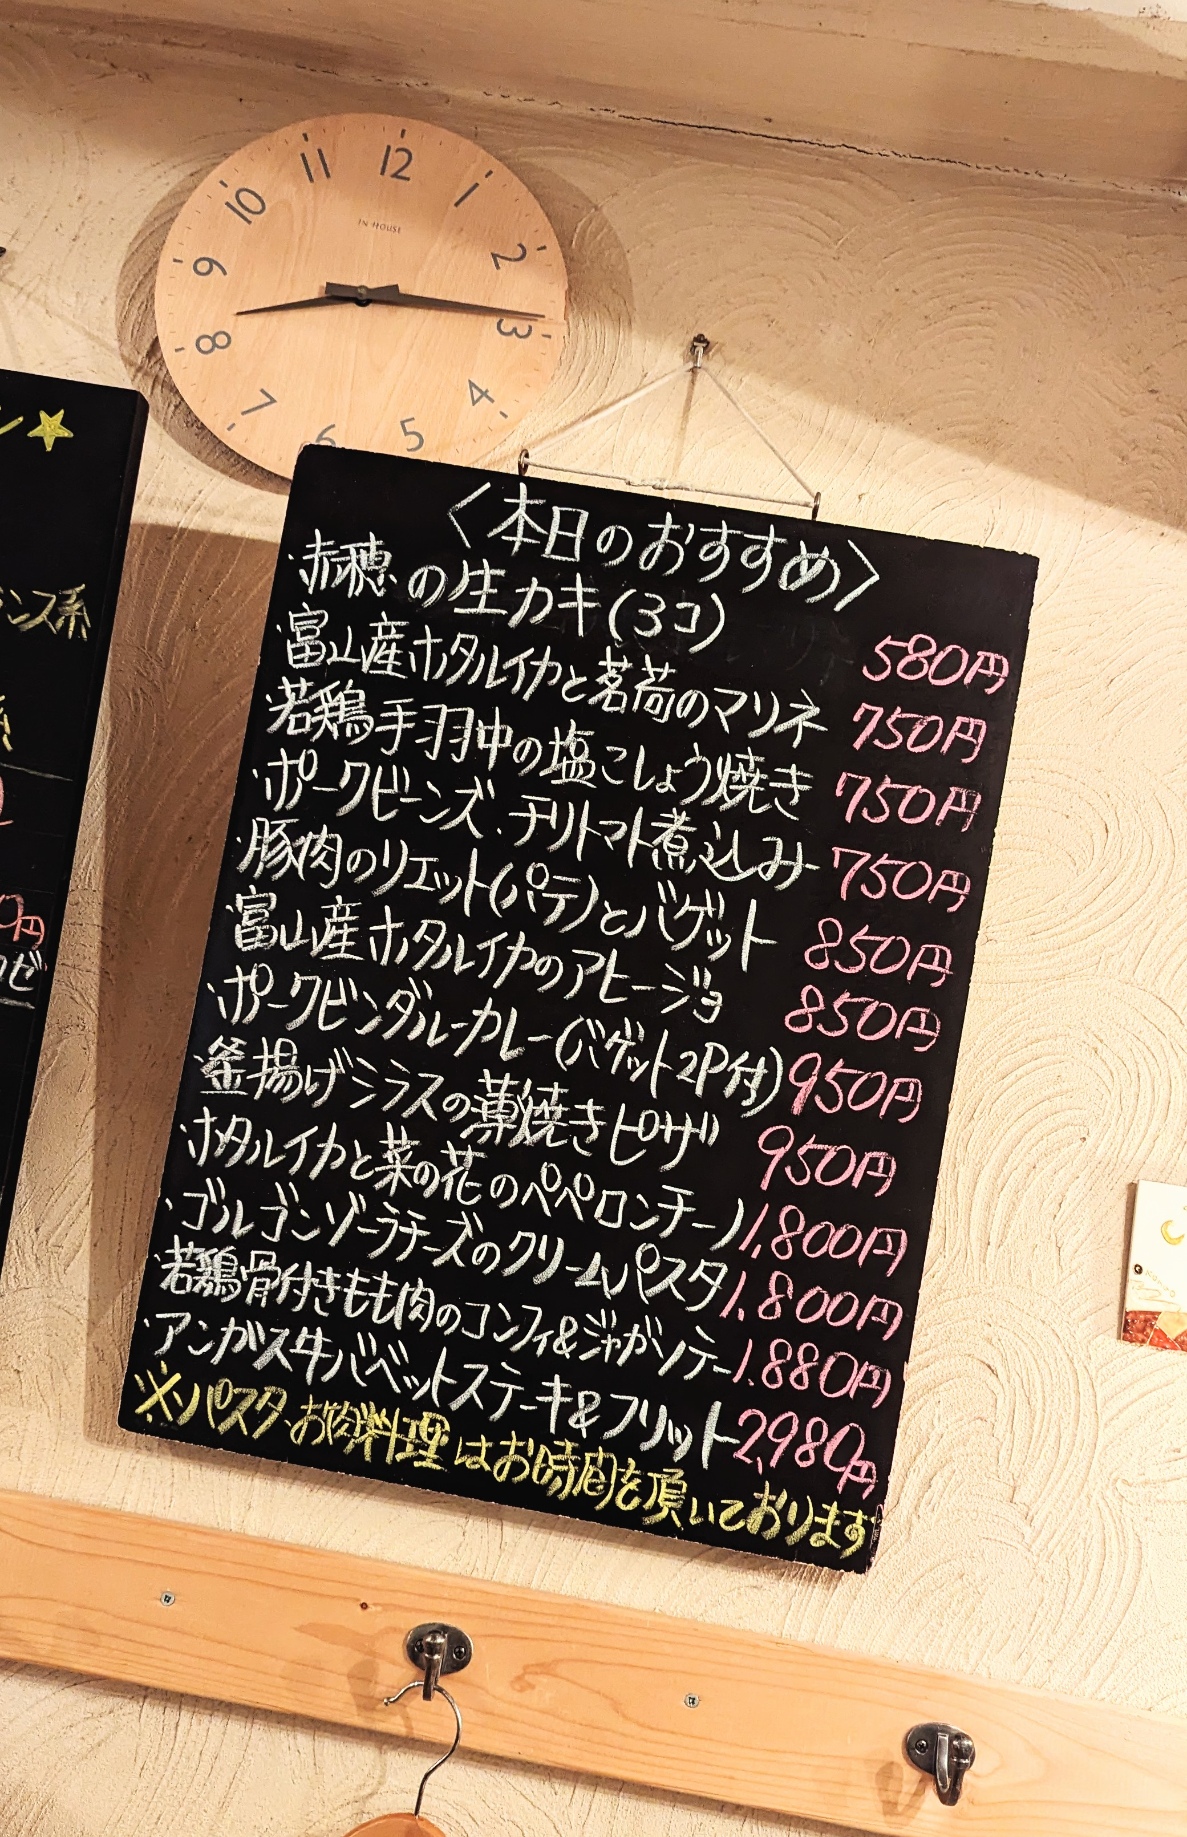 12
11
1
10
2
IN HOUSE
9
3
8
4
7
5
6
ンス系
円
ゼ
〈本日のおすすめ〉
・赤穂の生カキ(3コ) 580円
・富山産ホタルイカと茗荷のマリネ 750円
・若鶏手羽中の塩こしょう焼き 750円
・ポークビーンズ.チリトマト煮込み 750円
・豚肉のリエット(パテ)とバゲット 850円
・富山産ホタルイカのアヒージョ 850円
・ポークビンダルーカレー(バゲット2P付) 950円
・釜揚げシラスの薄焼きピザ 950円
・ホタルイカと菜の花のペペロンチーノ 1,800円
・ゴルゴンゾーラチーズのクリームパスタ 1,800円
・若鶏骨付きもも肉のコンフィ&ジャガソテー 1,880円
・アンガス牛バベットステーキ&フリット 2,980円
※パスタ、お肉料理はお時間を頂いております